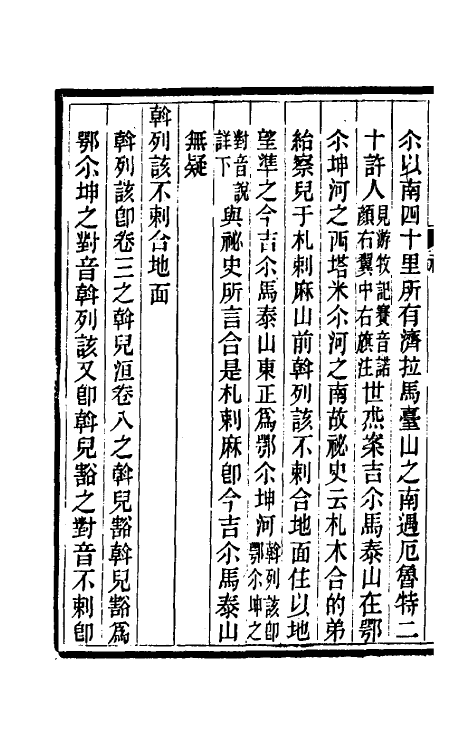 尒以南四十里所有濟拉馬臺山之南過厄魯特二
十許人見游牧記賽音諾顏右翼中右旗注世烝案吉尒馬泰山在鄂
尒坤河之西塔米尒河之南故祕史云札木合的弟
紿察兒于札剌麻山前斡列該不剌合地面住以地
望準之今吉尒馬泰山東正爲鄂尒坤河斡列該卽鄂尒坤之
對音說詳下與祕史所言合是札剌麻卽今吉尒馬泰山
無疑
斡列該不剌合地面
斡列該卽卷三之斡兒洹卷八之斡兒豁斡兒豁爲
鄂尒坤之對音斡列該又卽斡兒豁之對音不剌卽